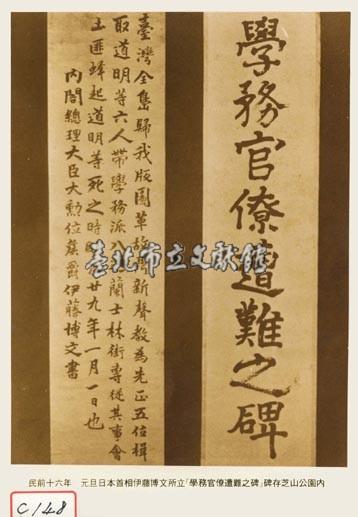 學務官僚遭難之碑
臺灣全島歸我版圖革故新聲教為先正五位楫
取道明等六人帶學務派八蘭士林街專從其事會
土匪蜂起道明等死之時廿九年一月一日也
內閣總理大臣大勳位侯爵伊藤博文書
臺北市立文獻館
民前十六年　元旦日本首相伊藤博文所立「學務官僚遭難之碑」碑存芝山公園內
C148